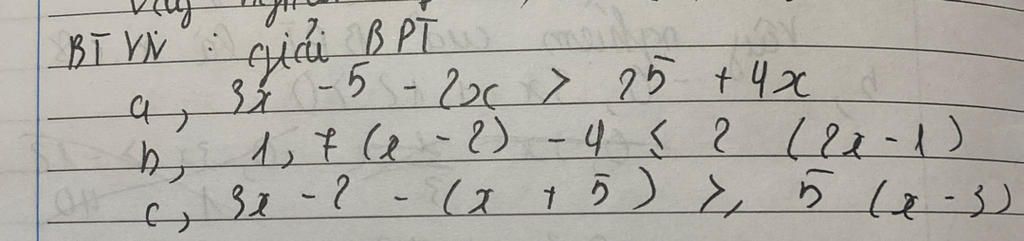 BTVN : giải BPT
a, 3x - 5 - 2x > 25 + 4x
b, 1,7 (x - 2) - 4 ≤ 2 (2x - 1)
c, 3x - 2 - (x + 5) ≥ 5 (x - 3)